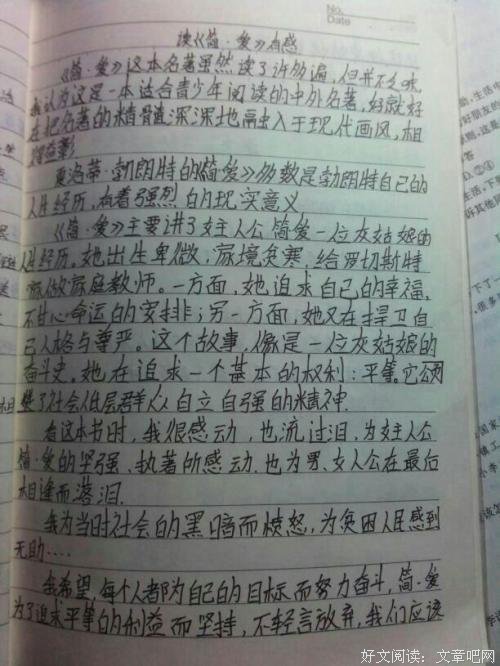 No.
Date
读《简·爱》有感
《简·爱》这本名著虽然读了许多遍,但并不乏味
我认为这是一本适合青少年阅读的中外名著,好就好
在把名著的精髓深深地融入于现代画风,相
得益彰
夏洛蒂·勃朗特的《简·爱》多数是勃朗特自己的
人生经历,有着强烈的现实意义
《简·爱》主要讲了女主人公简爱一位灰姑娘的
人生经历,她出生卑微,家境贫寒,给罗切斯特
家做家庭教师。一方面,她追求自己的幸福,
不甘心命运的安排;另一方面,她又在捍卫自
己人格与尊严。这个故事,像是一位灰姑娘的
奋斗史。她在追求一个基本的权利:平等。它
了社会低层群众自立自强的精神
看这本书时,我很感动,也流过泪,为女主人公
简·爱的坚强、执著所感动.也为男、女人公在最后
相逢而落泪.
我为当时社会的黑暗而愤怒,为贫困人民感到
无助....
我希望,每个人都为自己的目标而努力奋斗,简·爱
为了追求平等的利益而坚持,不轻言放弃,我们应该
好文阅读:文章吧网